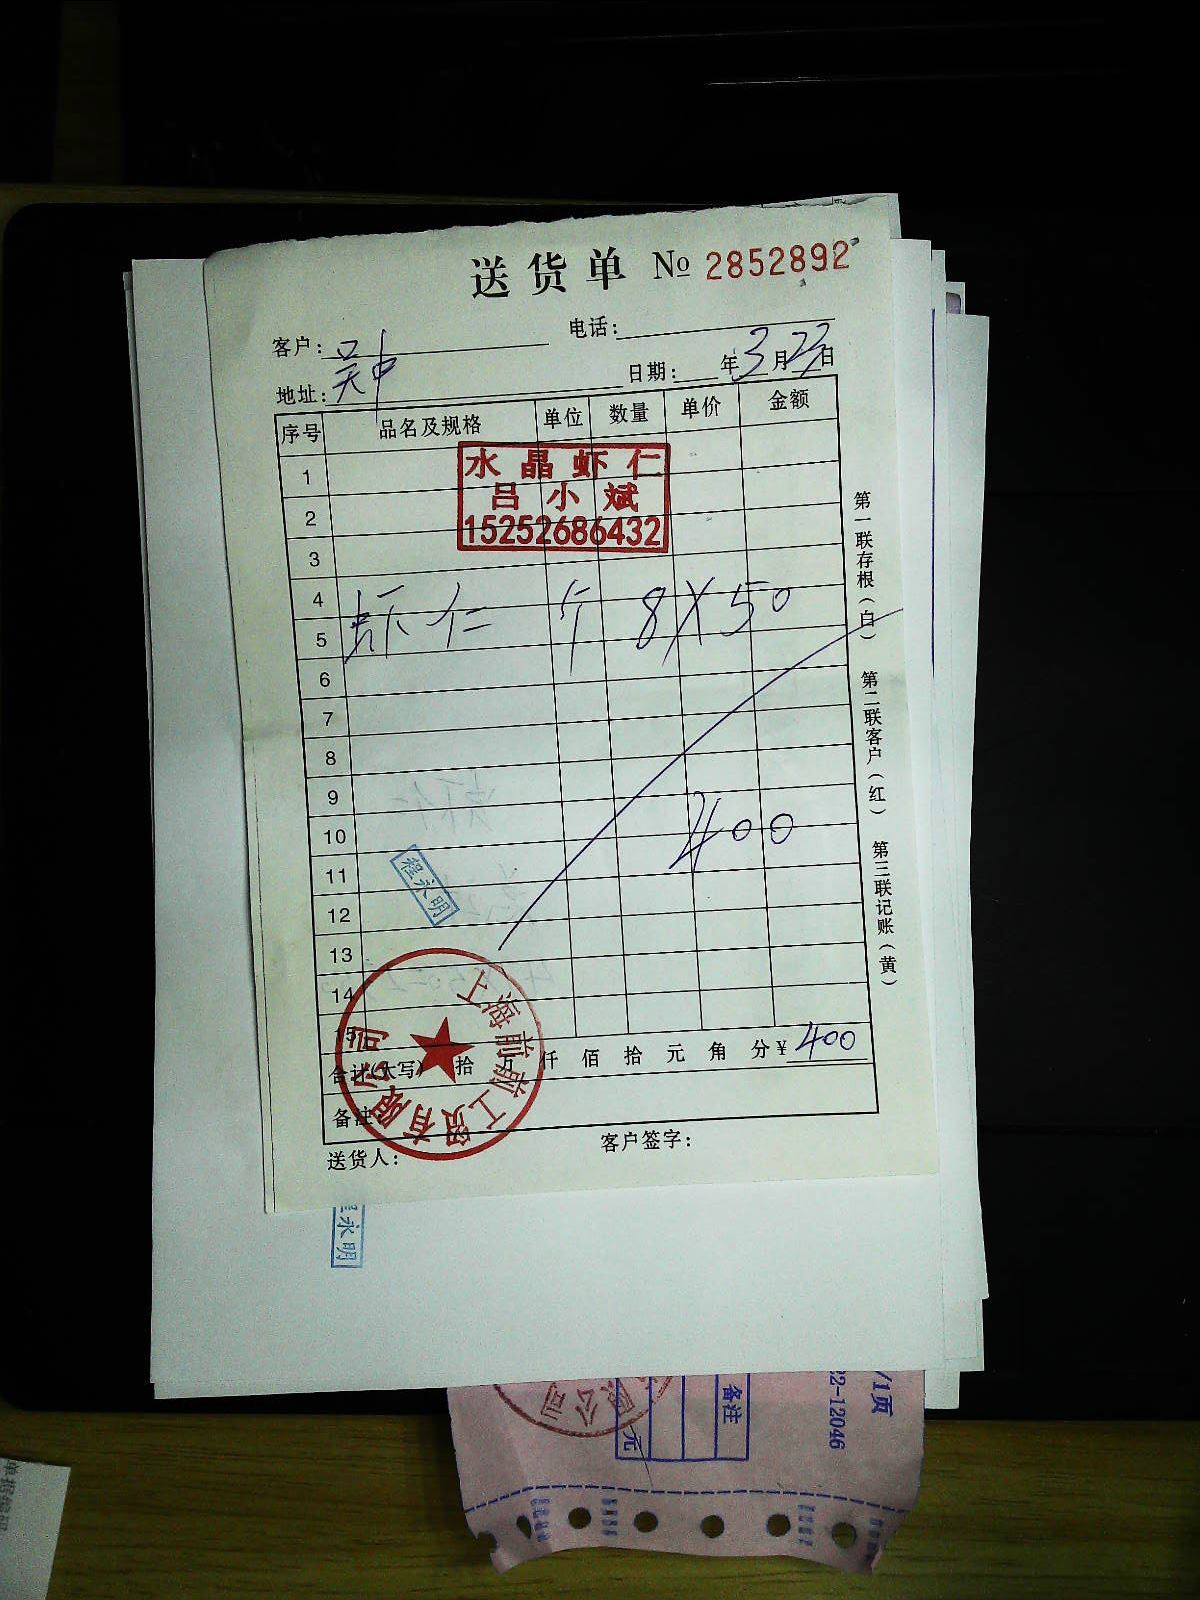 送货单 № 2852892
客户: 吴中 电话:
地址: 日期: 年3月23日
序号 品名及规格 单位 数量 单价 金额
水晶虾仁
吕小斌
15252686432
1
2
3
4
5 虾仁 斤 8×50
6
7
8
9
10 400
11
程永明
12
13
14
15
上海前前工贸有限公司
合计(大写) 拾 万 仟 佰 拾 元 角 分 ¥ 400
备注
送货人: 客户签字:
第一联存根(白) 第二联客户(红) 第三联记账(黄)
程永明
/1页
2-12046
备注
元
公司